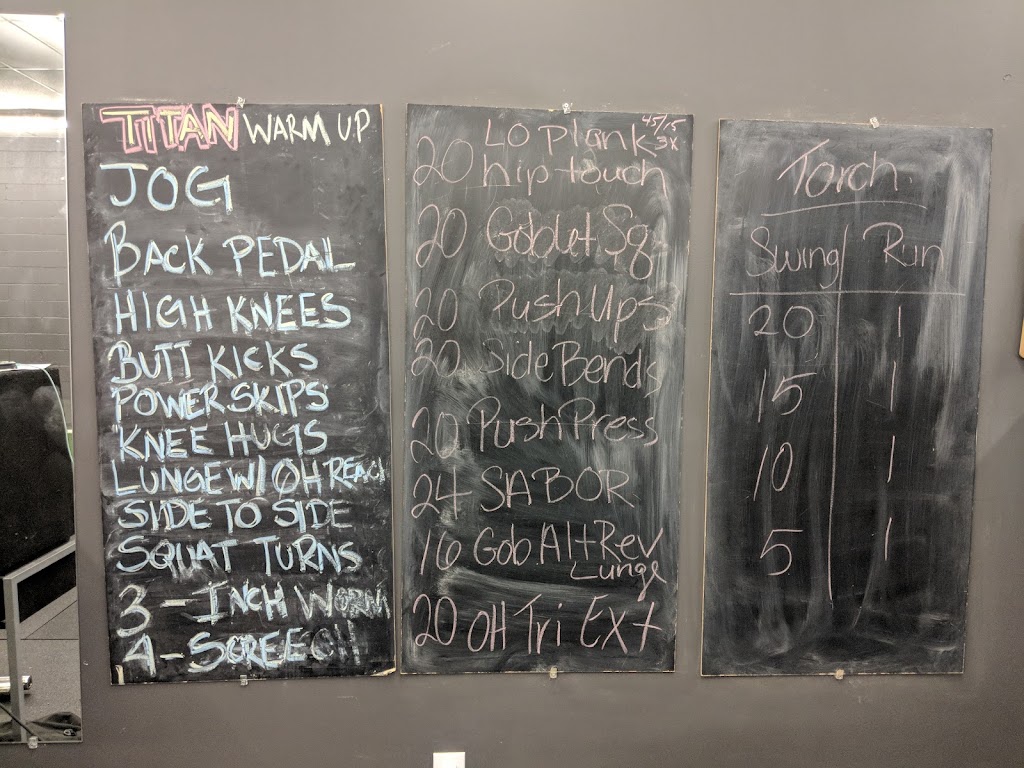 TITAN WARM UP
JOG
BACK PEDAL
HIGH KNEES
BUTT KICKS
POWER SKIPS
KNEE HUGS
LUNGE W/ OH REACH
SIDE TO SIDE
SQUAT TURNS
3 - INCH WORM
4 - SCREECH
LO Plank 45/15
20 hip touch 3X
20 Goblet Sq.
20 Push Ups
20 Side Bends
20 Push Press
24 SABOR
16 Gob Alt Rev
Lunge
20 OH Tri Ext
Torch
Swing Run
20 1
15 1
10 1
5 1